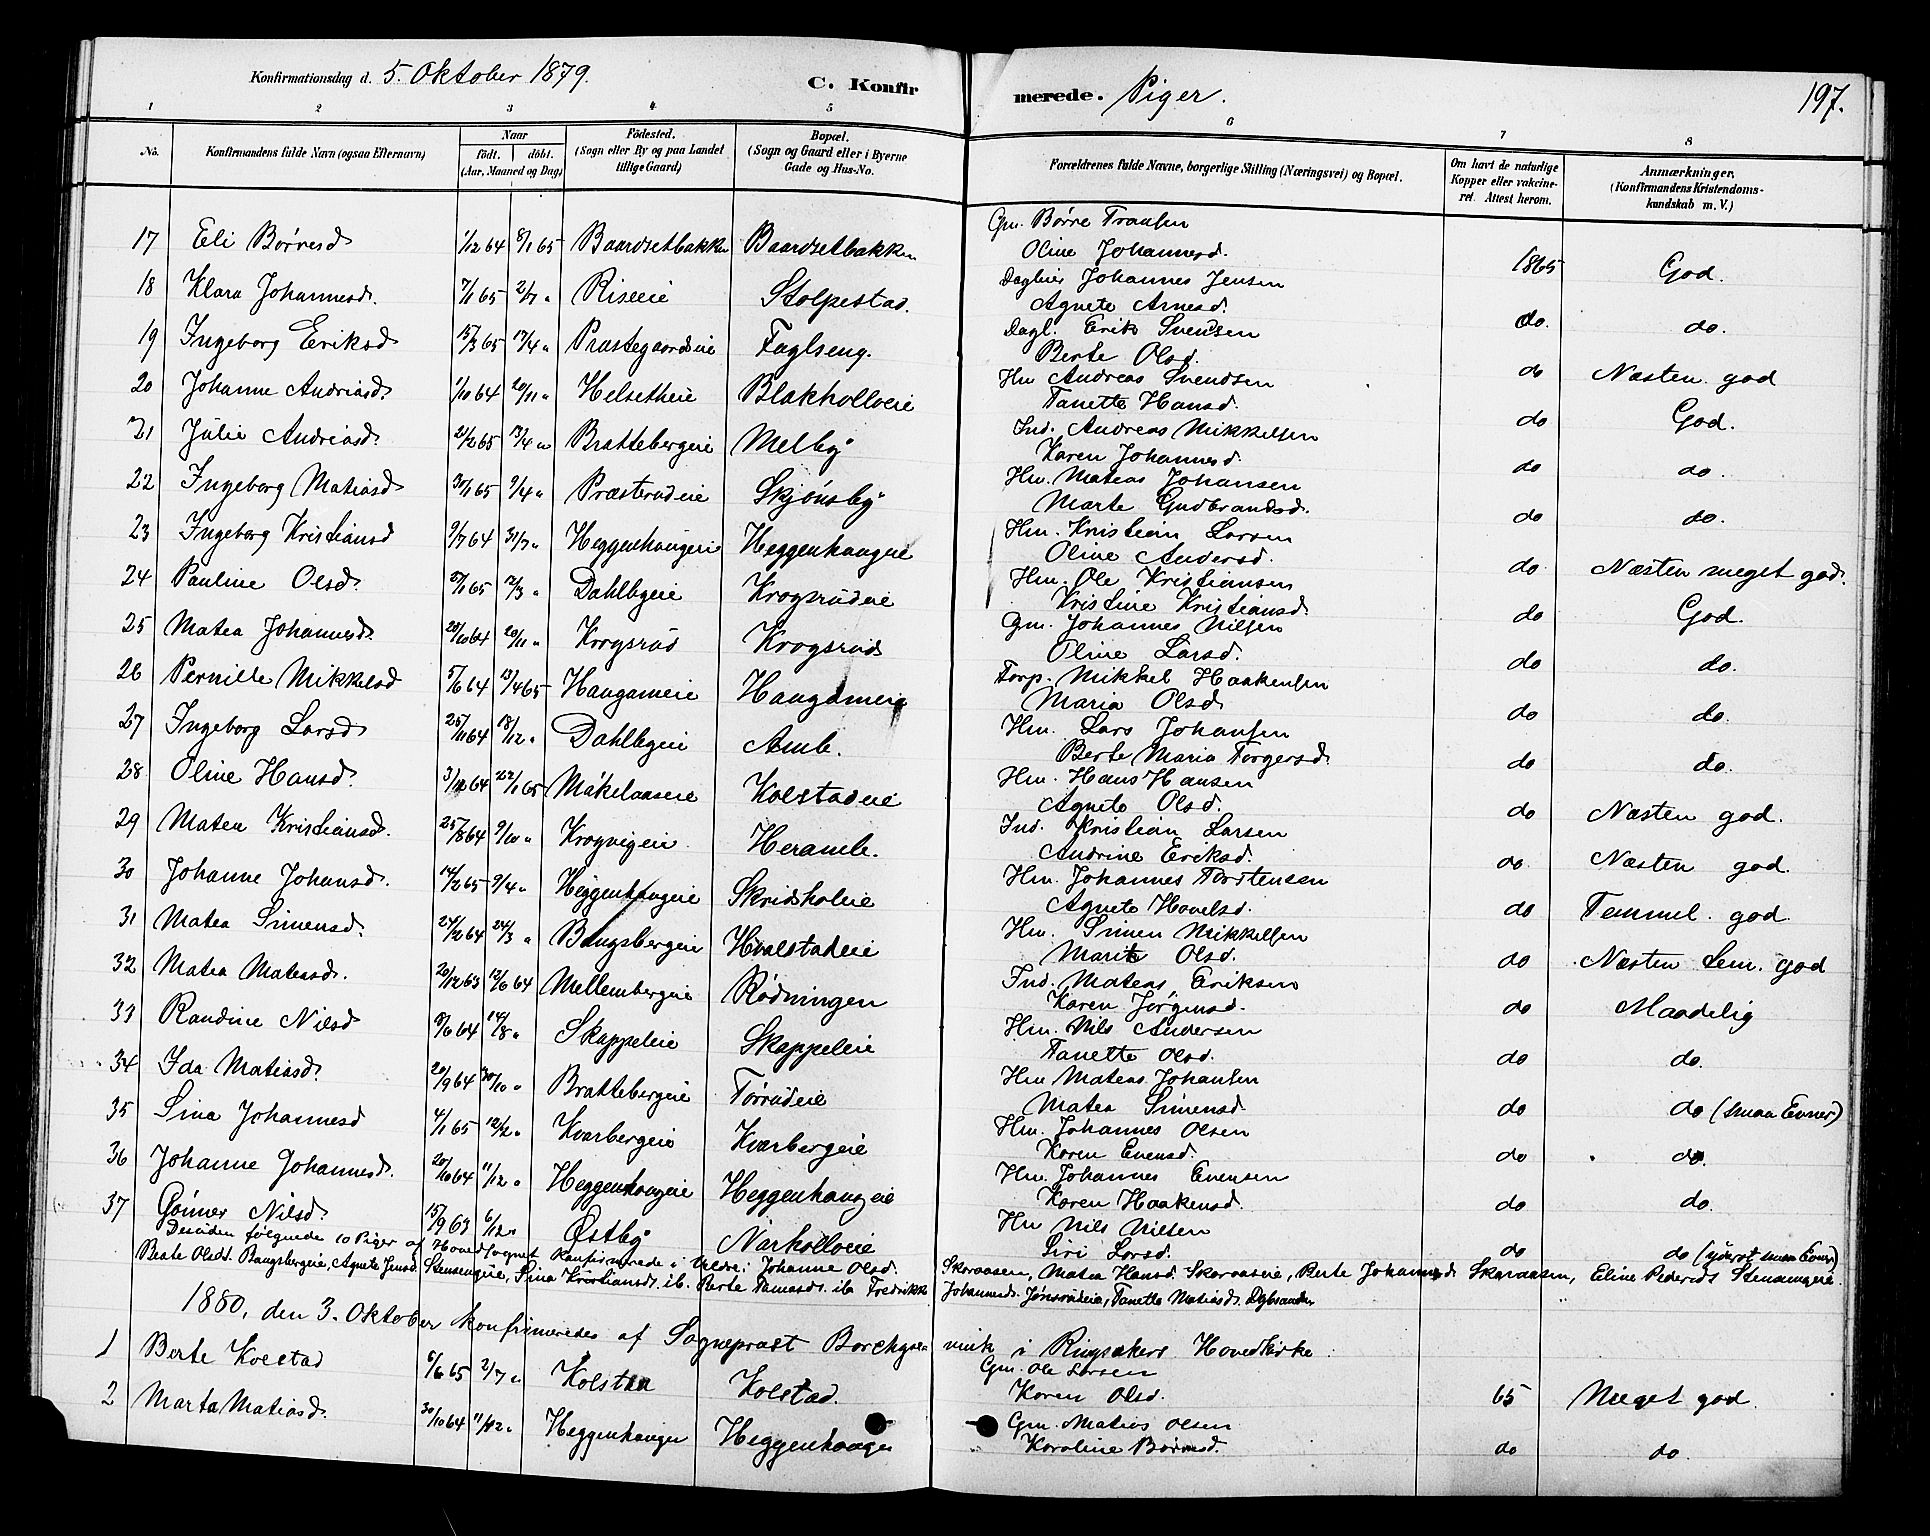 Konfirmationsdag d. 5. Oktober 1879. C. Konfir merede. Piger. 197.
1 2 3 4 5 6 7 8
No. Konfirmandens fulde Navn (ogsaa Efternavn) Naar födt. döbt. (Aar, Maaned og Dag) Födested. (Sogn eller By og paa Landet tillige Gaard) Bopæl. (Sogn og Gaard eller i Byerne Gade og Hus-No. Forældrenes fulde Navne, borgerlige Stilling (Næringsvei) og Bopæl. Om havt de naturlige Kopper eller vakcineret. Attest herom. Anmærkninger, (Konfirmandens Kristendomskundskab m. V.)
17 Eli Børresd 1/12 64 8/1 65 Baardsetbakken Baardsetbakken Gm. Børre Fransen Oline Johannesd. 1865 God.
18 Klara Johannesd. 7/1 65 2/7 " Riseeie Stolpestad. Johannes Jensen Agnete Arnesd. do. do.
19 Ingeborg Eriksd 15/3 65 17/4 " Præstegaardseie Faglseng. Dagl. Erik Svendsen Berte Olsd. do Næsten god
20 Johanne Andreasd. 1/10 64 20/11 " Helsetheie Blakholloeie Hm Andreas Svendsen Tanette Hansd. do God.
21 Julie Andreasd. 21/2 65 17/4 " Brattebergeie Melby Ind. Andreas Mikkelsen Karen Johannesd. do do.
22 Ingeborg Matiasd 30/1 65 9/4 " Præsterudeie Skjønsby Hm. Mateas Johansen Marte Gudbrandsd. do do.
23 Ingeborg Kristiansd 9/7 64 31/7 " Heggenhaugeie Heggenhaugeie Hm. Kristian Larsen Oline Andersd. do Næsten meget god.
24 Pauline Olsd. 27/1 65 12/3 " Dahlbyeie Krogsrudeie Hm. Ole Kristiansen Kristine Kristiansd. do God.
25 Matea Johannesd. 20/10 64 20/11 " Krogsrud Krogsrud Gm. Johannes Nilsen Oline Larsd. do do.
26 Pernille Mikkelsd 5/6 64 17/4 65 Haugameie Haugameie Torp. Mikkel Haakensen Maria Olsd do do.
27 Ingeborg Larsd 25/11 64 18/12 " Dahlbyeie Amb. Hm. Lars Johansen Berte Maria Torgersd. do do.
28 Oline Hansd. 3/12 64 22/1 65 Mäkelaaseie Kolstadeie Hm. Hans Hansen Agnete Olsd. do Næsten god.
29 Matea Kristiansd. 25/8 64 9/10 " Krogvigeie Heramb. Ind. Kristian Larsen Andrine Eriksd. do Næsten god
30 Johanne Johansd. 14/2 65 9/4 " Heggenhaugeie Skridsholeie Hm. Johannes Torstensen Agnete Hovelsd. do Temmel. god
31 Matea Simensd. 24/2 64 24/3 " Bangsbergeie Hvalstadeie Hm. Simen Mikkelsen Marit Olsd. do Næsten tem. god
32 Matea Mateasd. 20/12 63 12/6 64 Mellembergeie Rødningen Ind. Mateas Eriksen Karen Jørgensd. do Maadelig
33 Randine Nilsd 8/6 64 14/8 " Skappeleie Skappeleie Hm. Nils Andersen Tanette Olsd. do do.
34 Ida Matiasd. 20/9 64 30/10 " Brattebergeie Tørrudeie Hm Mateas Johansen Matea Simensd. do do (smaa Evner)
35 Sina Johannesd 4/1 65 12/2 " Kvarbergeie Kvarbergeie Hm. Johannes Olsen Karen Evensd. do do.
36 Johanne Johannesd. 20/10 64 11/12 " Heggenhaugeie Heggenhaugeie Hm. Johannes Evensen Karen Haakensd. do do.
37 Gønner Nilsd. 15/9 63 6/12 " Østby Narkolloeie Hm Nils Nilsen Siri Larsd. do do (yderst smaa Evner)
Desuden følgende 10 Piger af Hovedsognet konfirmerede i Veldre: Johanne Olsd. Skaraasen, Matea Hansd. Skaraaseie, Berte Johannesd. Skaraasen, Eline Pedersd Stensengeie
Beate Olsdt. Bangsbergeie, Agnete Jensd. Stensengeie, Sina Kristiansd. ib. Berte ib. Fredrikke Johannesd. Jønsrudeie, Tanette Matiasd.
1880, den 3. Oktober konfirmeredes af Sogneprast Borchgrevink i Ringsakers Hovedkirke.
1 Berte Kolstad 6/6 65 2/7 " Kolstad Kolstad. Gm. Ole Larsen Karen Olsd. 65 Meget god.
2 Marta Matiasd. 30/10 64 11/12 " Heggenhaugen Heggenhaugen Gm. Matias Olsen Karoline Børresd. do do.